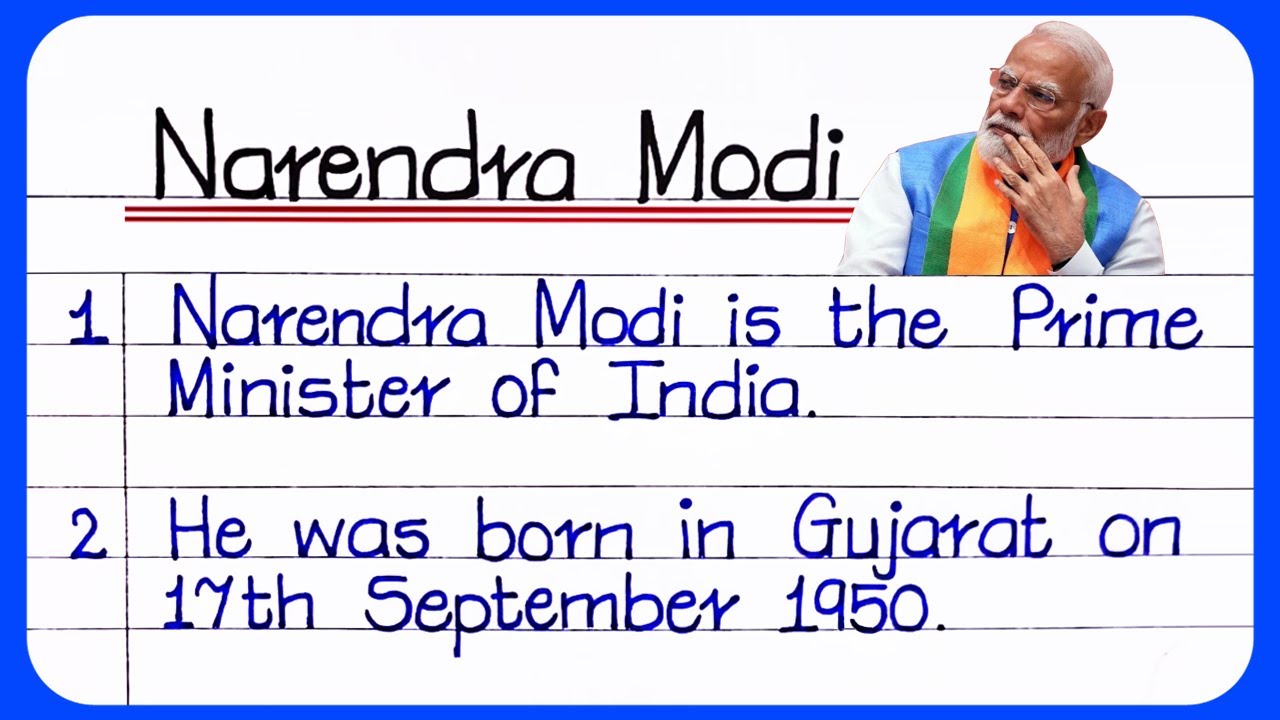 Narendra Modi
1 Narendra Modi is the Prime
Minister of India.
2 He was born in Gujarat on
17th September 1950.